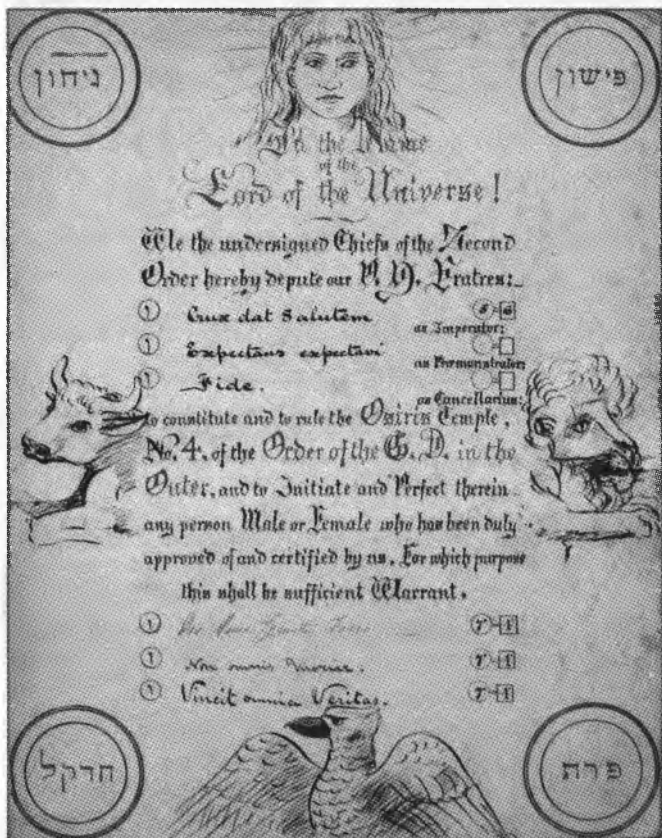 ניחון פישון
In the Name
of the
Lord of the Universe!
We the undersigned Chiefs of the Second
Order hereby depute our V. H. Fratres:
Crux dat Salutem 5 6
as Imperator:
Expectans expectavi
as Præmonstrator:
Fide.
as Cancellarius:
to constitute and to rule the Osiris Temple,
No. 4. of the Order of the G. D. in the
Outer, and to Initiate and Perfect therein
any person Male or Female who has been duly
approved of and certified by us. For which purpose
this shall be sufficient Warrant.
Non omnis moriar.
Vincit omnia Veritas.
חדקל פרת